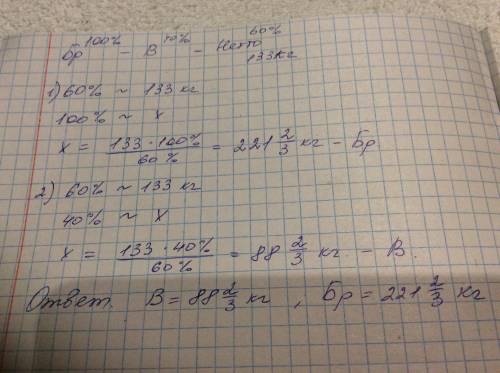 Бр 100% – В 40% – Нетто 60% 133 кг
1) 60% ~ 133 кг
100% ~ х
х = 133 · 100% / 60% = 221 2/3 кг – Бр
2) 60% ~ 133 кг
40% ~ х
х = 133 · 40% / 60% = 88 2/3 кг – В.
Ответ. В = 88 2/3 кг , Бр = 221 2/3 кг